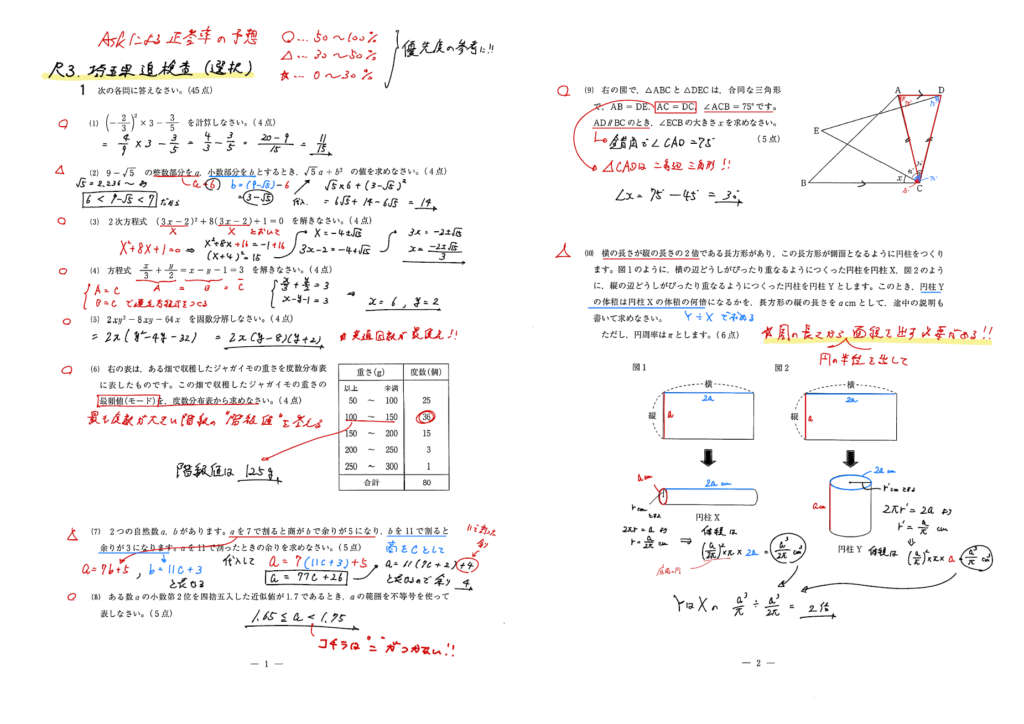 Askによる正答率の予想
○… 50〜100%
△… 30〜50%
★… 0〜30%
優先度の参考に!!
R3. 埼玉県追検査（選択）
1 次の各問に答えなさい。(45点)
(1) (−2/3)² × 3 − 3/5 を計算しなさい。(4点)
= 4/9 × 3 − 3/5 = 4/3 − 3/5 = (20−9)/15 = 11/15
(2) 9−√5 の整数部分を a, 小数部分を b とするとき, √5 a + b² の値を求めなさい。(4点)
√5=2.236〜より
a=6 b=(9-√5)-6
=3-√5
6<9-√5<7 だから
√5×6+(3-√5)²
代入 =6√5+14-6√5=14
(3) 2次方程式 (3x−2)²+8(3x−2)+1=0 を解きなさい。(4点)
X X とおいて
X²+8X+1=0 ⇒ X²+8X+16=-1+16
(X+4)²=15
X=-4±√15
3x-2=-4±√15
3x=-2±√15
x=(-2±√15)/3
(4) 方程式 x/3 + y/2 = x−y−1 = 3 を解きなさい。(4点)
A = B = C
A=C
B=C で連立方程式をつくる
x/3+y/2=3
x-y-1=3
⇒ x=6, y=2
(5) 2xy²−8xy−64x を因数分解しなさい。(4点)
=2x(y²-4y-32) =2x(y-8)(y+4)
★共通因数が最優先!!
(6) 右の表は, ある畑で収穫したジャガイモの重さを度数分布表
に表したものです。この畑で収穫したジャガイモの重さの
最頻値(モード)を, 度数分布表から求めなさい。(4点)
最も度数が大きい階級の"階級値"を答える
階級値は 125g
重さ(g) 度数(個)
以上 未満
50 〜 100 25
100 〜 150 36
150 〜 200 15
200 〜 250 3
250 〜 300 1
合計 80
(7) 2つの自然数 a, b があります。a を7で割ると商が b で余りが5になり, b を11で割ると
余りが3になります。a を11で割ったときの余りを求めなさい。(5点)
商をCとして
a=7b+5, b=11C+3
と表せる
代入して a=7(11C+3)+5
a=77C+26
a=11(7C+2)+4
と表せるので余り 4
(8) ある数 a の小数第2位を四捨五入した近似値が1.7であるとき, a の範囲を不等号を使って
表しなさい。(5点)
1.65≦a<1.75
コチラは"="がつかない!!
— 1 —
(9) 右の図で, △ABC と △DEC は, 合同な三角形
で, AB=DE, AC=DC, ∠ACB=75° です。
AD∥BC のとき, ∠ECB の大きさ x を求めなさい。
(5点)
錯角で∠CAD=75°
△CADは二等辺三角形!!
∠x=75°-45°=30°
A D
E
B C
x
(10) 横の長さが縦の長さの2倍である長方形があり, この長方形が側面となるように円柱をつくり
ます。図1のように, 横の辺どうしがぴったり重なるようにつくった円柱を円柱X, 図2のよう
に, 縦の辺どうしがぴったり重なるようにつくった円柱を円柱Yとします。このとき, 円柱Y
の体積は円柱Xの体積の何倍になるかを, 長方形の縦の長さを a cm として, 途中の説明も
書いて求めなさい。
Y÷Xで求める
ただし, 円周率は π とします。(6点)
★周の長さから面積を出す必要がある!!
円の半径を出して
図1 図2
横 横
2a 2a
縦 a 縦 a
a cm 2a cm
r cmとする
円柱X
2πr=a より
r=a/2π cm
⇒
体積は
(a/2π)²×π×2a=a³/2π cm³
底面の円
2a cm
r' cmとする
a cm
円柱Y
2πr'=2a より
r'=a/π cm
⇓
体積は (a/π)²×π×a=a³/π cm³
YはXの a³/π÷a³/2π=2倍
— 2 —